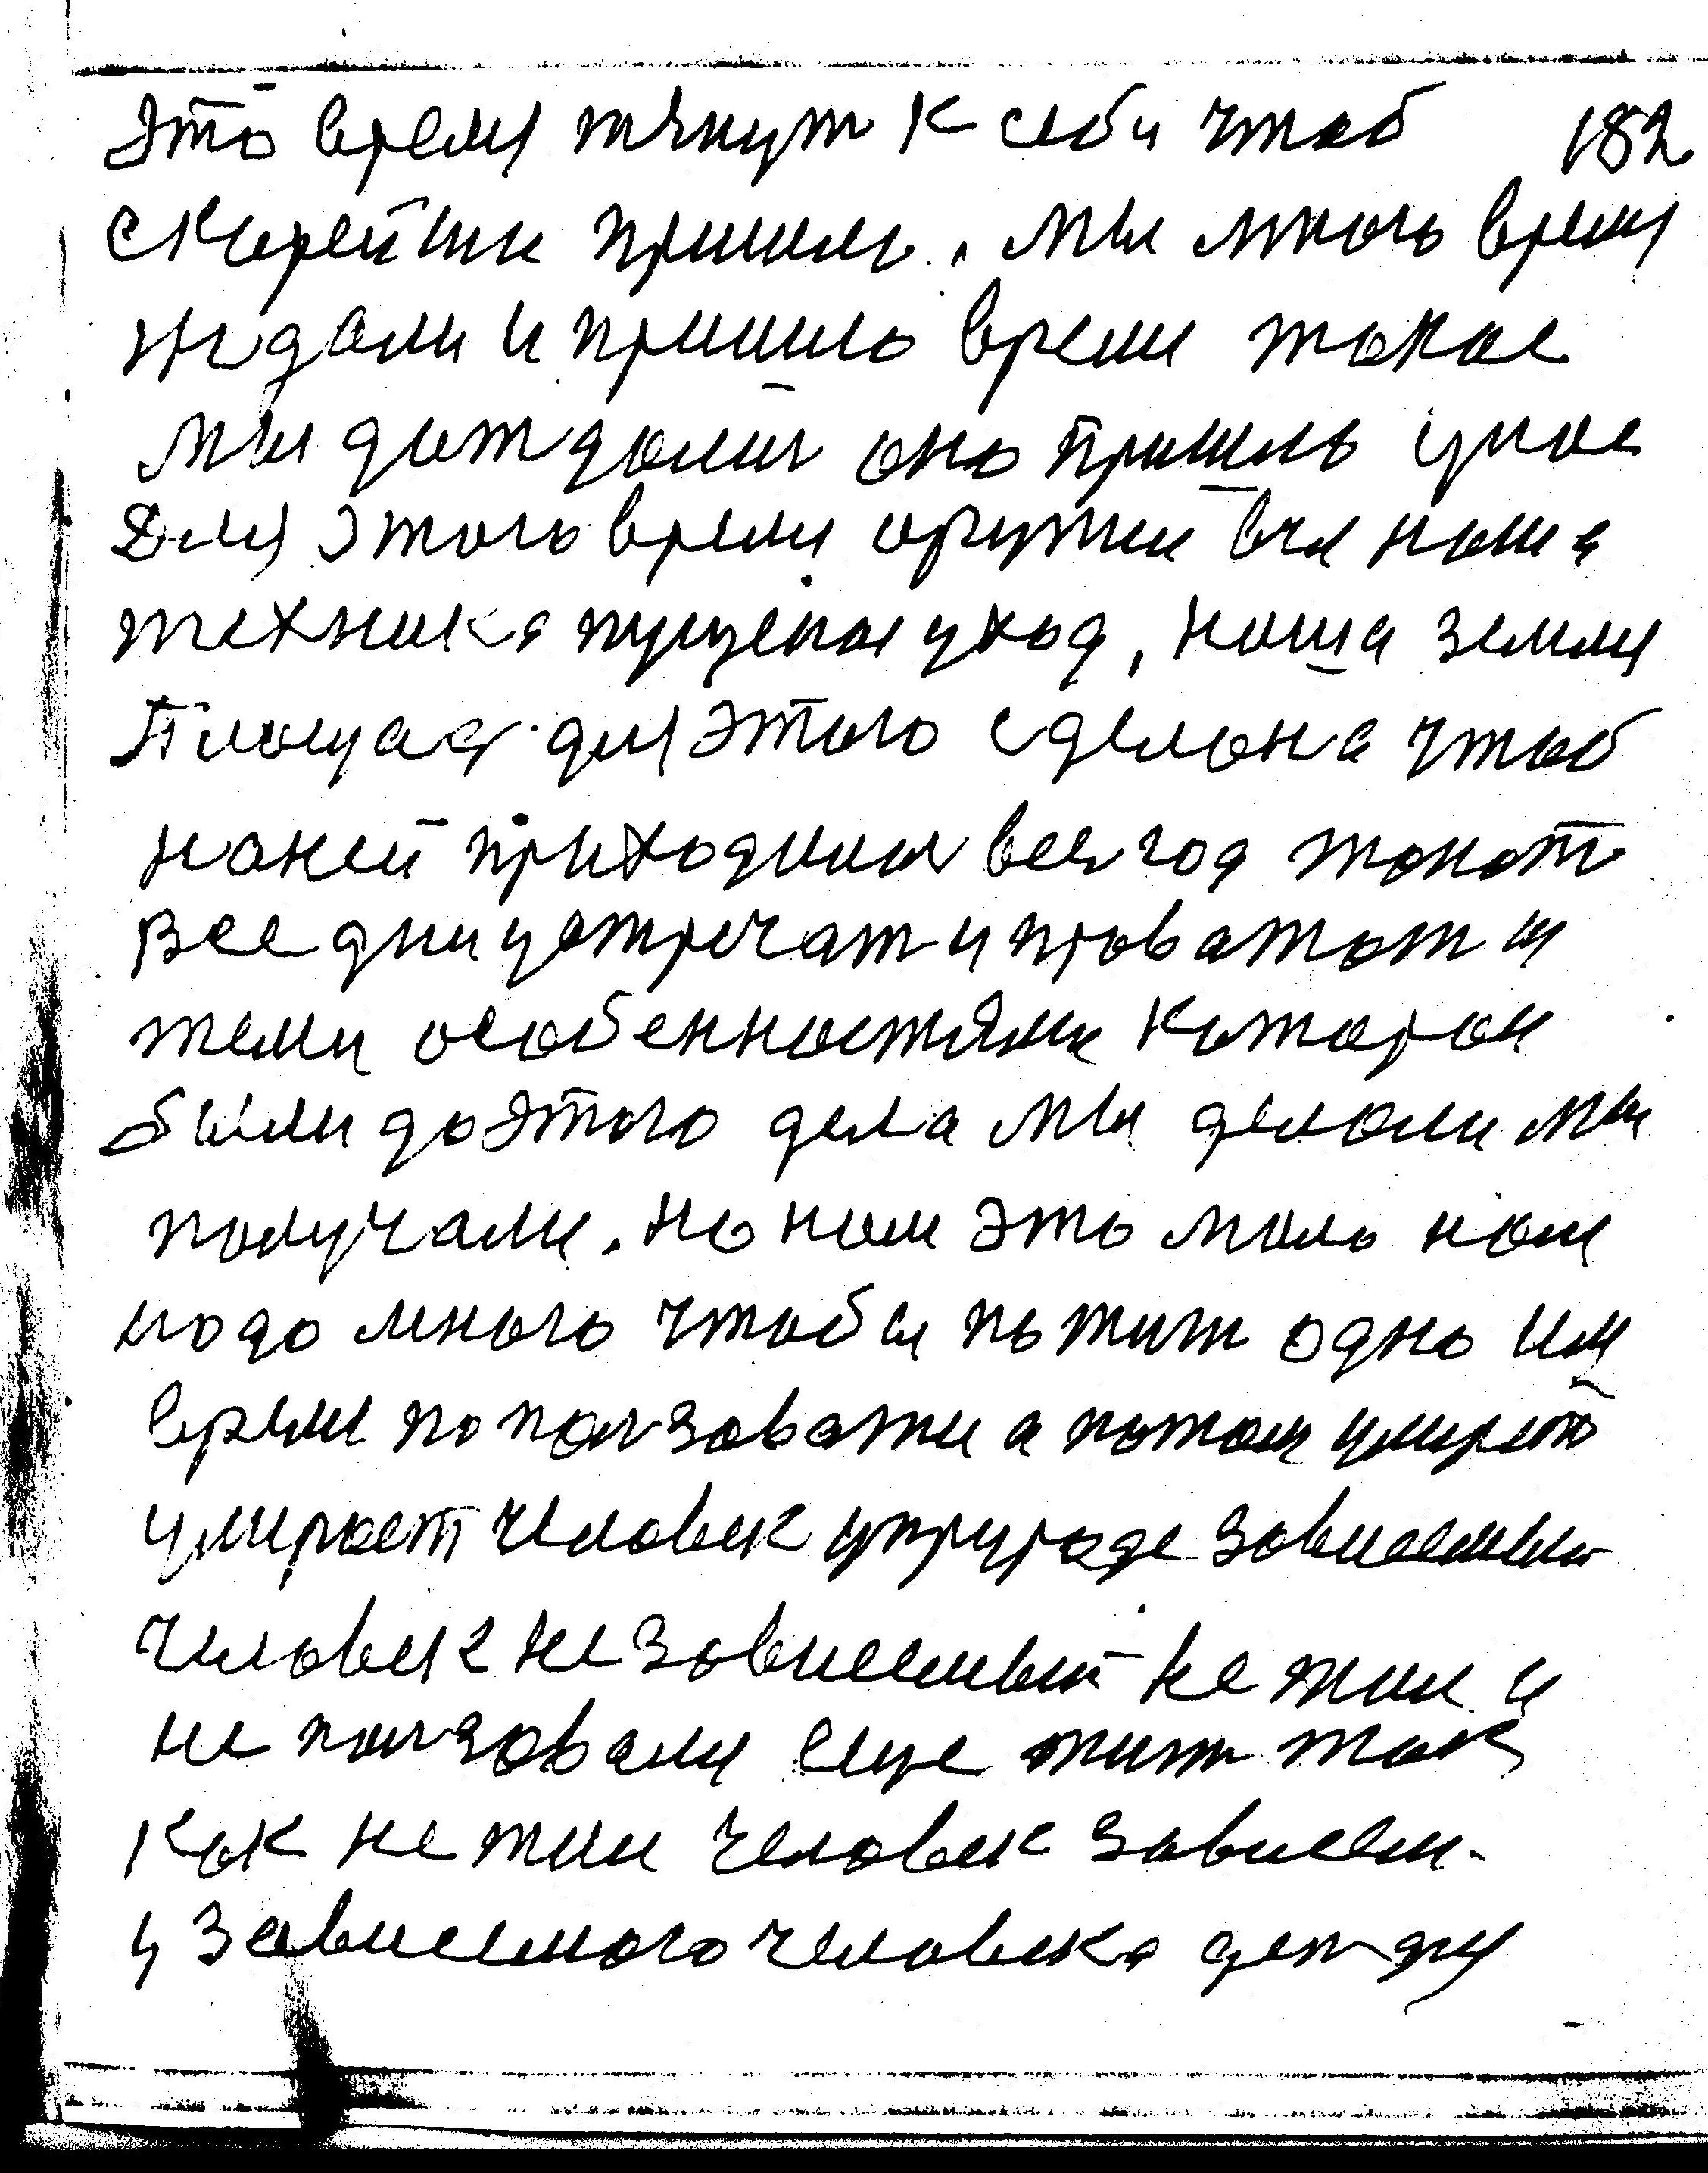 это время тянут к себи чтоб 182
скорейши пришло. мы много время
ждали и пришло время такое
мы дождалис оно пришло унас
Для этого время оружие вся наша
техника пущеная уход, наша земля
Площад для этого сделана чтоб
наней приходилис весь год
Все дни устречат и проважат и
теми особенностями которои
были до этого дела мы делали мы
получали. но нам это мало нам
надо много чтобы пожит одно
время попользоватце а потом умирет
умирает человек уприроде зависемыи
человек не зависемый не жил и
не ползовалц еще жит так
как не жил человек зависем.
у зависемого человека